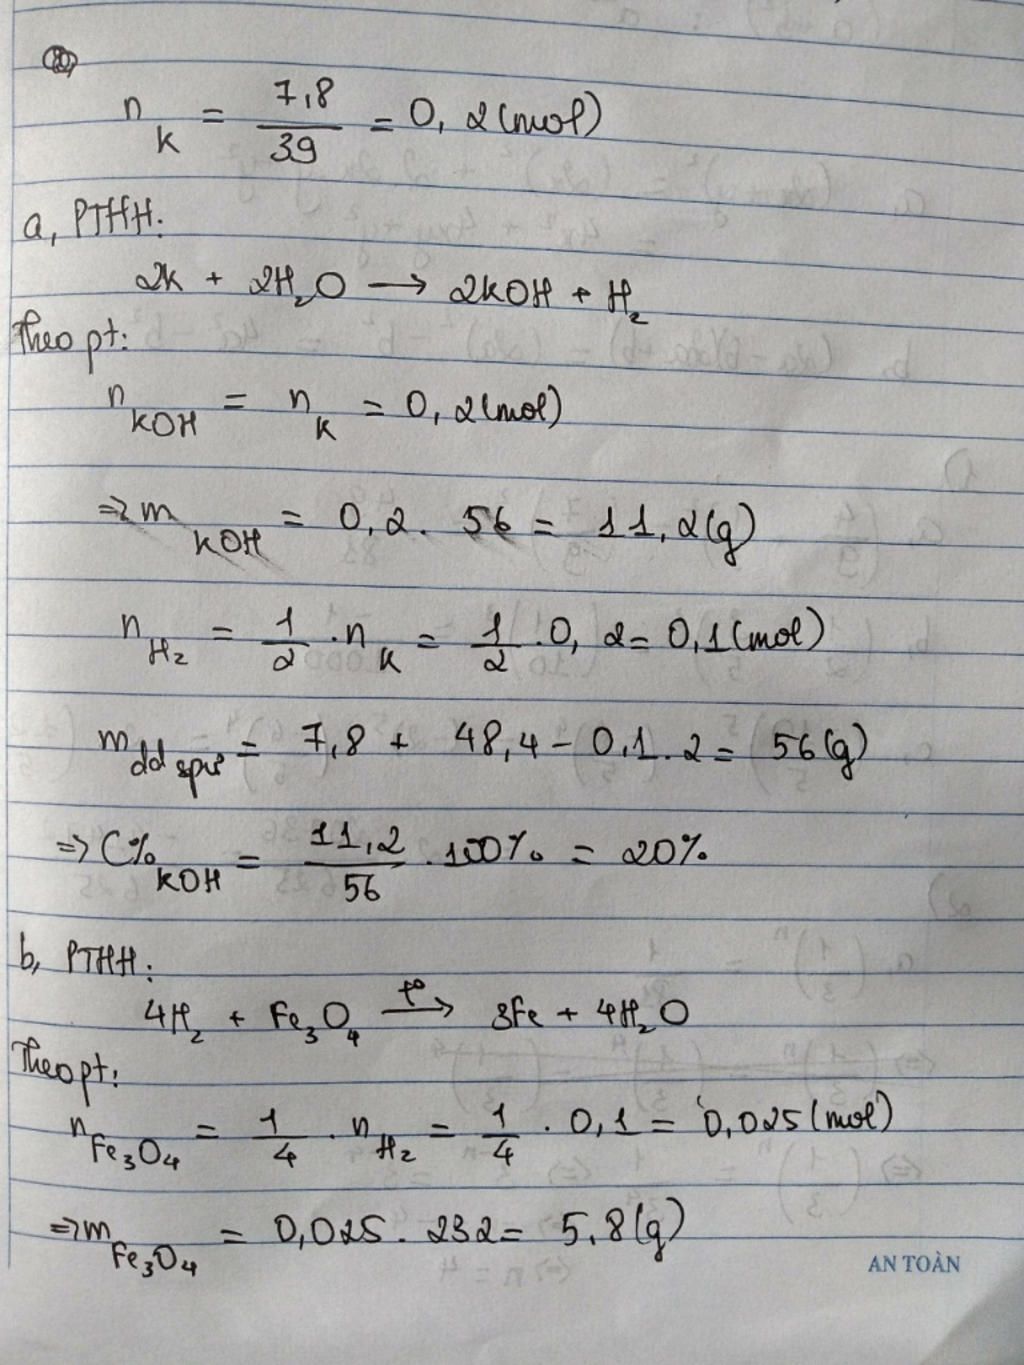 n_K = 7,8/39 = 0,2(mol)
a, PTHH:
2K + 2H₂O → 2KOH + H₂
Theo pt:
n_KOH = n_K = 0,2(mol)
=> m_KOH = 0,2. 56 = 11,2(g)
n_H₂ = 1/2 . n_K = 1/2 . 0,2 = 0,1(mol)
m_dd spư = 7,8 + 48,4 - 0,1. 2 = 56(g)
=> C%_KOH = 11,2/56 . 100% = 20%
b, PTHH:
4H₂ + Fe₃O₄ →(t°) 3Fe + 4H₂O
Theo pt:
n_Fe₃O₄ = 1/4 . n_H₂ = 1/4 . 0,1 = 0,025(mol)
=> m_Fe₃O₄ = 0,025. 232 = 5,8(g)
AN TOÀN